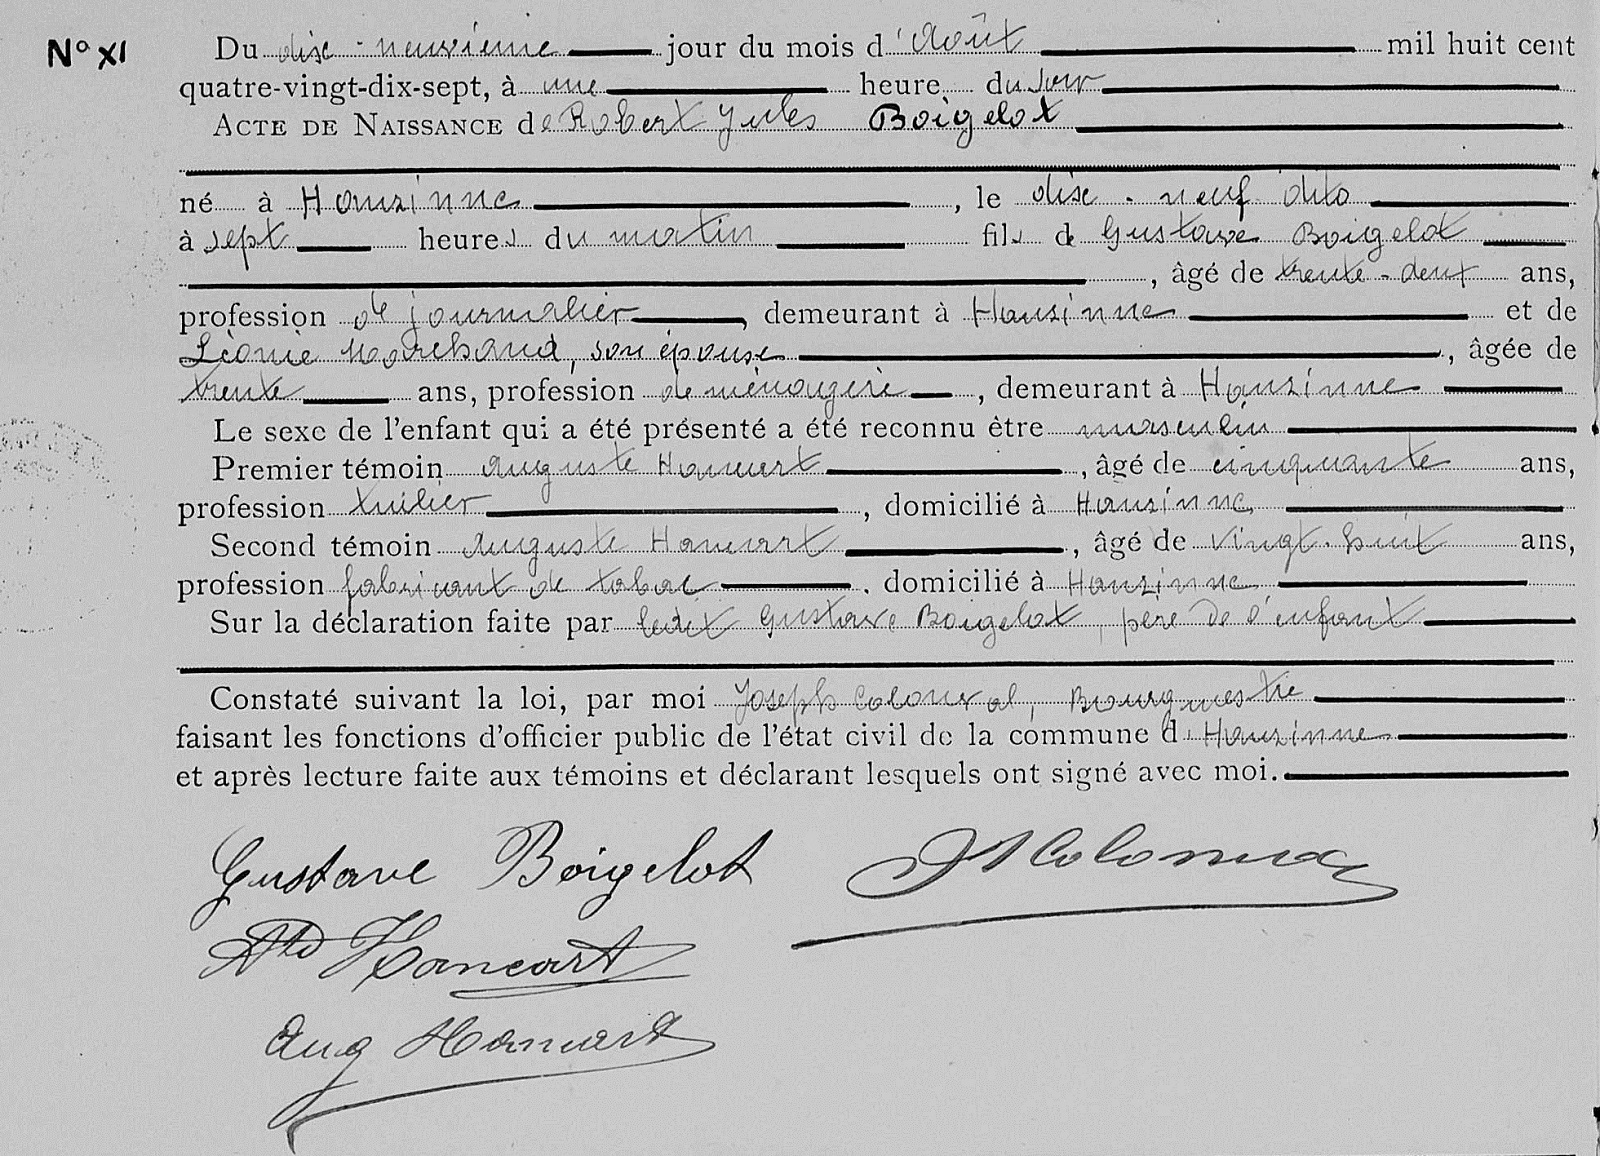 N° XI
Du dix-neuvième jour du mois d'Août mil huit cent
quatre-vingt-dix-sept, à une heure du soir
ACTE DE NAISSANCE de Robert Jules Boigelot
né à Hanzinne, le dix-neuf dito
à sept heures du matin fils de Gustave Boigelot
, âgé de trente-deux ans,
profession de journalier, demeurant à Hanzinne et de
Léonie Marchand, son épouse, âgée de
trente ans, profession de ménagère, demeurant à Hanzinne
Le sexe de l'enfant qui a été présenté a été reconnu être masculin
Premier témoin Auguste Hancart, âgé de cinquante ans,
profession tuilier, domicilié à Hanzinne
Second témoin Auguste Hancart, âgé de vingt-huit ans,
profession fabricant de tabac, domicilié à Hanzinne
Sur la déclaration faite par ledit Gustave Boigelot, père de l'enfant
Constaté suivant la loi, par moi Joseph Colonval, Bourgmestre
faisant les fonctions d'officier public de l'état civil de la commune d' Hanzinne
et après lecture faite aux témoins et déclarant lesquels ont signé avec moi.
Gustave Boigelot
Hancart
Aug Hancart